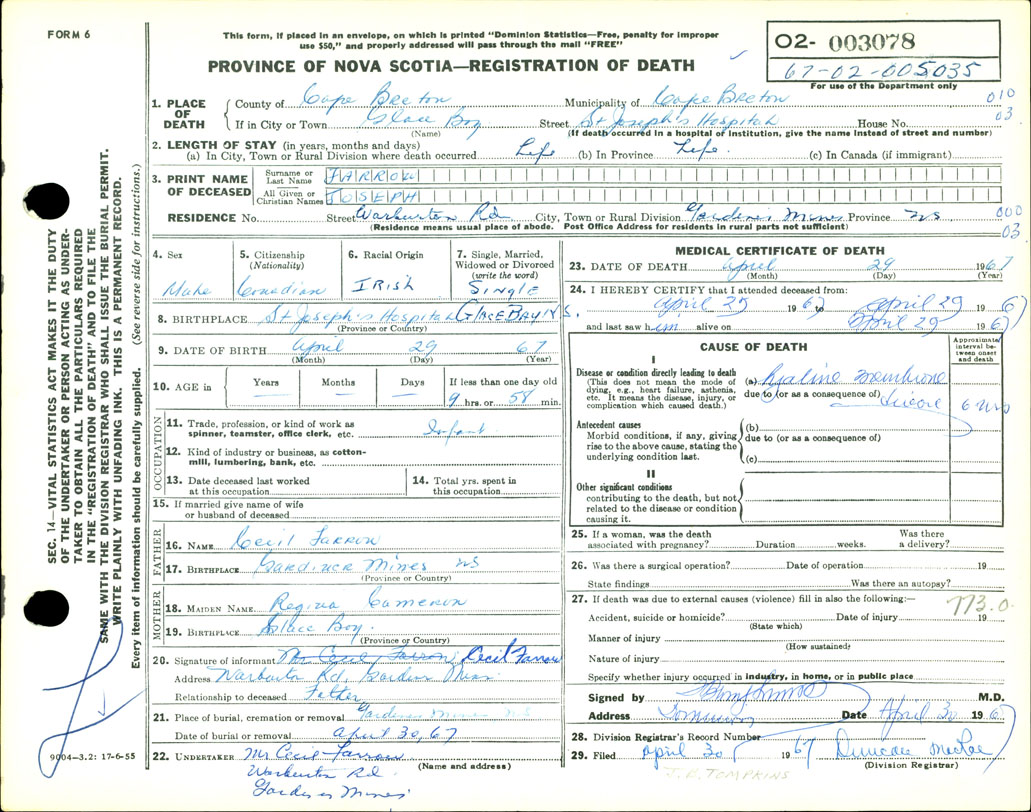 FORM 6
This form, if placed in an envelope, on which is printed "Dominion Statistics—Free, penalty for improper
use $50," and properly addressed will pass through the mail "FREE"
PROVINCE OF NOVA SCOTIA—REGISTRATION OF DEATH
02- 003078
67-02-005035
For use of the Department only
1. PLACE OF DEATH
County of Cape Breton Municipality of Cape Breton 010
If in City or Town Glace Bay Street St Joseph's Hospital House No. 03
(Name) (If death occurred in a hospital or institution, give the name instead of street and number)
2. LENGTH OF STAY (in years, months and days)
(a) In City, Town or Rural Division where death occurred Life (b) In Province Life. (c) In Canada (if immigrant)
3. PRINT NAME OF DECEASED
Surname or Last Name FARROW
All Given or Christian Names JOSEPH
RESIDENCE No. Street Warburton Rd City, Town or Rural Division Gardiner Mines Province NS 000
(Residence means usual place of abode. Post Office Address for residents in rural parts not sufficient) 03
4. Sex
Male
5. Citizenship
(Nationality)
Canadian
6. Racial Origin
IRish
7. Single, Married,
Widowed or Divorced
(write the word)
SINGLE
8. BIRTHPLACE St Joseph's Hospital GlACE BAY N.S.
(Province or Country)
9. DATE OF BIRTH April 29 67
(Month) (Day) (Year)
10. AGE in Years Months Days If less than one day old
9 hrs. or 58 min.
OCCUPATION
11. Trade, profession, or kind of work as
spinner, teamster, office clerk, etc. Infant
12. Kind of industry or business, as cotton-
mill, lumbering, bank, etc.
13. Date deceased last worked
at this occupation
14. Total yrs. spent in
this occupation
15. If married give name of wife
or husband of deceased
FATHER
16. NAME Cecil Farrow
17. BIRTHPLACE Gardiner Mines NS
(Province or Country)
MOTHER
18. MAIDEN NAME Regina Cameron
19. BIRTHPLACE Glace Bay.
(Province or Country)
20. Signature of informant Mr Cecil Farrow Cecil Farrow
Address Warburton Rd, Gardiner Mines
Relationship to deceased Father
21. Place of burial, cremation or removal Gardiner Mines NS
Date of burial or removal April 30, 67
22. UNDERTAKER Mr Cecil Farrow
(Name and address)
Warburton Rd.
Gardiner Mines
MEDICAL CERTIFICATE OF DEATH
23. DATE OF DEATH April 29 1967
(Month) (Day) (Year)
24. I HEREBY CERTIFY that I attended deceased from:
April 29 1967 April 29 1967
and last saw him alive on April 29 1967
CAUSE OF DEATH
Approximate interval between onset and death
I
Disease or condition directly leading to death
(This does not mean the mode of
dying, e.g., heart failure, asthenia,
etc. It means the disease, injury, or
complication which caused death.)
(a) Hyaline Membrane
due to (or as a consequence of)
Disease 6 hrs
Antecedent causes
Morbid conditions, if any, giving
rise to the above cause, stating the
underlying condition last.
(b)
due to (or as a consequence of)
(c)
II
Other significant conditions
contributing to the death, but not
related to the disease or condition
causing it.
25. If a woman, was the death
associated with pregnancy? Duration weeks. Was there
a delivery?
26. Was there a surgical operation? Date of operation 19
State findings Was there an autopsy?
27. If death was due to external causes (violence) fill in also the following:— 773.0
Accident, suicide or homicide? Date of injury 19
(State which)
Manner of injury
(How sustained)
Nature of injury
Specify whether injury occurred in industry, in home, or in public place
Signed by M.D.
Address Dominion Date April 30 1967
28. Division Registrar's Record Number
29. Filed April 30 1967 Duncan MacRae
(Division Registrar)
J. D. TOMPKINS
SEC. 14—VITAL STATISTICS ACT MAKES IT THE DUTY
OF THE UNDERTAKER OR PERSON ACTING AS UNDER-
TAKER TO OBTAIN ALL THE PARTICULARS REQUIRED
IN THE "REGISTRATION OF DEATH" AND TO FILE THE
SAME WITH THE DIVISION REGISTRAR WHO SHALL ISSUE THE BURIAL PERMIT.
WRITE PLAINLY WITH UNFADING INK. THIS IS A PERMANENT RECORD.
Every item of information should be carefully supplied. (See reverse side for instructions.)
9004-3.2: 17-6-55